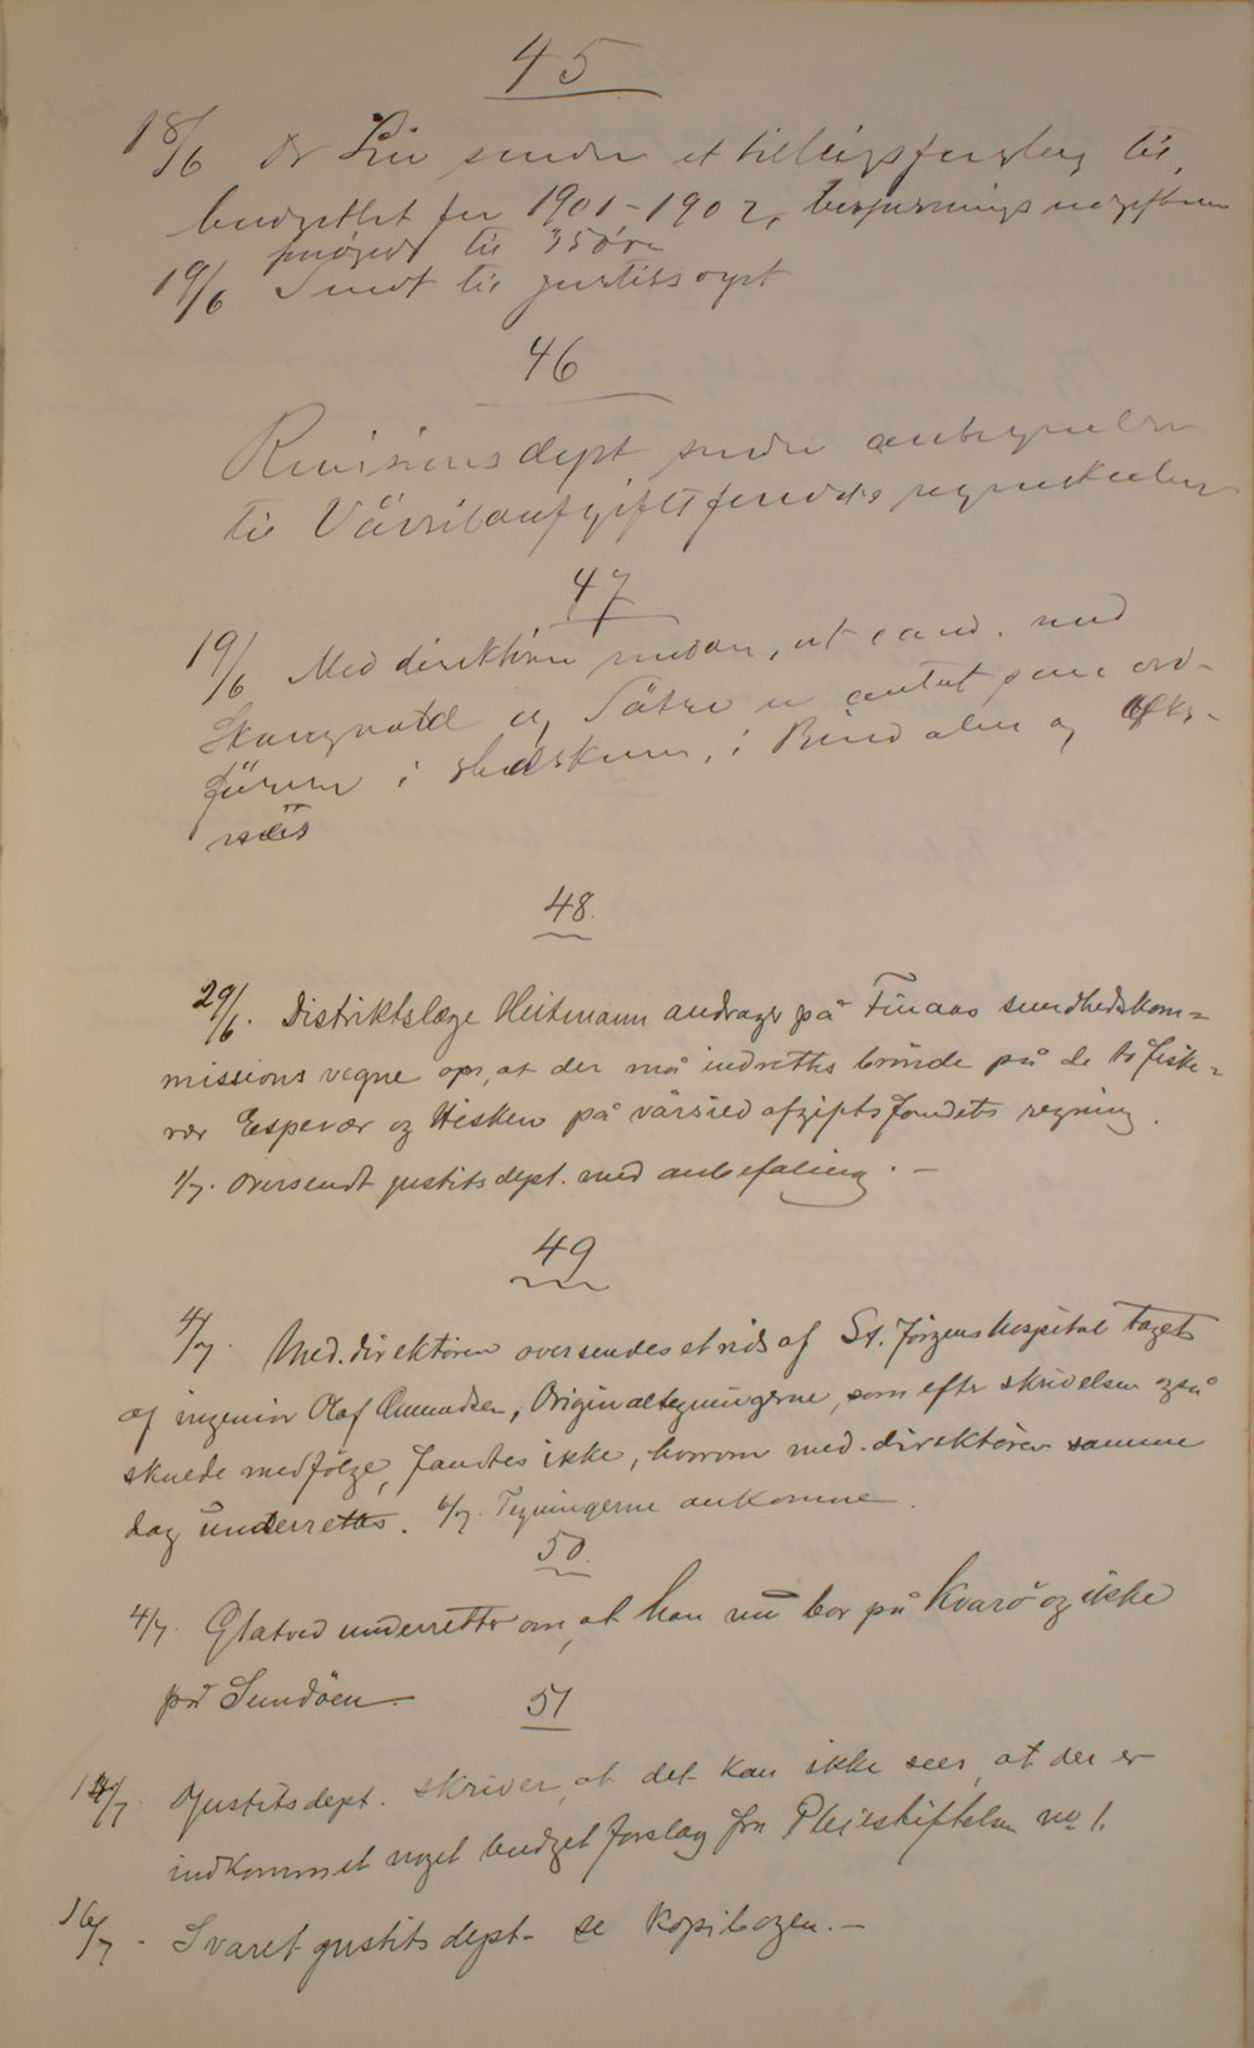 45
18/6 Dr Lie sender et tillægsforslag til
budgettet for 1901-1902, bespisningsudgifterne
forøget til 35 øre
19/6 Sendt til justitsdept
46
Revisionsdept sender antegnelser
til Vårsildafgiftsfondets regnskaber
47
19/6 Meddirektören meddeler, at cand. med
og Sätre er antat som ord-
förere i sundhedskomm. i Bindalen og
näs
48.
29/6. Distriktslæge Heitmann andrager på Finaas sundhedskom=
missions vegne om, at der må indrettes brönde på de to fiske=
vær Espevær og Hisken på vårsildafgiftsfondets regning.
1/7. Oversendt justitsdept. med anbefaling. —
49
4/7. Med.direktören oversendes et rids af St. Jørgens hospital taget
af ingeniör Olaf Amundsen, Originaltegningerne, som efter skrivelsen også
skulde medfölge, fandtes ikke, hvorom med.direktören samme
dag underrettes. 6/7. Tegningerne ankomne.
50.
4/7. Glatved underretter om, at han nu bor på Kvarö og ikke
på Sundöen —
51
14/7. Justitsdept. skriver, at det kan ikke sees, at der er
indkommet noget budgetforslag fra Pleiestiftelsen no 1.
16/7. Svaret justitsdept. se kopibogen. —